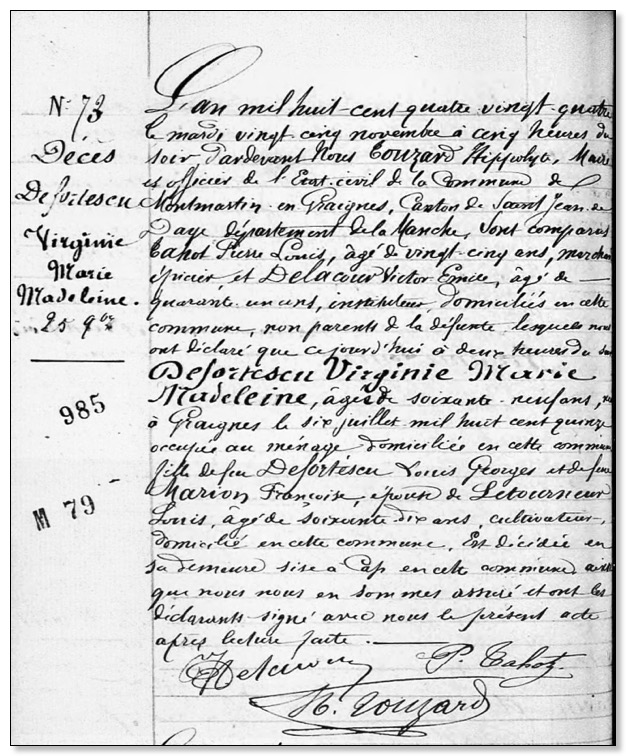 N° 73
Décès
Defortescu
Virginie
Marie
Madeleine.
25 9bre
985
M 79
L'an mil huit cent quatre vingt quatre
le mardi vingt cinq novembre à cinq heures du
soir, Pardevant Nous Touzard Hippolyte, Maire
et officier de l'Etat civil de la Commune de
Montmartin en Graignes, Canton de Saint Jean de
Daye département de la Manche, Sont comparus
Cahot Pierre Louis, âgé de vingt-cinq ans, marchand
épicier et Delacour Victor Emile, âgé de
quarante un ans, instituteur, domiciliés en cette
commune, non parents de la défunte, lesquels nous
ont déclaré que ce jourd'hui à deux heures du soir
Defortescu Virginie Marie
Madeleine, âgée de soixante-neuf ans, née
à Graignes le six juillet mil huit cent quinze
occupée au ménage domiciliée en cette commune
fille de feu Defortescu Louis Georges et de feue
Marion Françoise, épouse de Letourneur
Louis, âgé de soixante dix ans, cultivateur,
domicilié en cette commune, Est décédée en
sa demeure sise à Cap en cette commune ainsi
que nous nous en sommes assuré et ont les
déclarants signé avec nous le présent acte
après lecture faite.
Delacour P. Cahot
H. Touzard